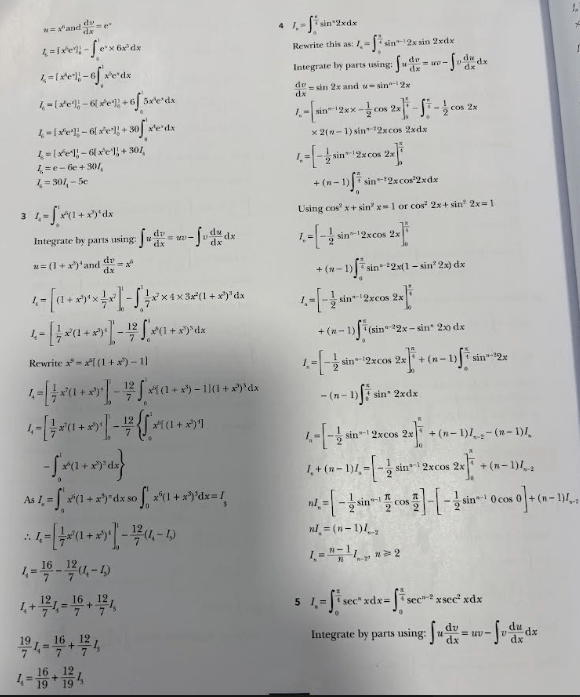 u = x⁶ and dv/dx = eˣ
I₆ = [x⁶eˣ]₀¹ − ∫₀¹ eˣ × 6x⁵ dx
I₆ = [x⁶eˣ]₀¹ − 6∫₀¹ x⁵eˣ dx
I₆ = [x⁶eˣ]₀¹ − 6[x⁵eˣ]₀¹ + 6∫₀¹ 5x⁴eˣ dx
I₆ = [x⁶eˣ]₀¹ − 6[x⁵eˣ]₀¹ + 30∫₀¹ x⁴eˣ dx
I₆ = [x⁶eˣ]₀¹ − 6[x⁵eˣ]₀¹ + 30I₄
I₆ = e − 6e + 30I₄
I₆ = 30I₄ − 5e
3 I₄ = ∫₀¹ x⁶(1 + x³)⁴ dx
Integrate by parts using: ∫u dv/dx = uv − ∫v du/dx dx
u = (1 + x³)⁴ and dv/dx = x⁶
I₄ = [(1 + x³)⁴ × 1/7 x⁷]₀¹ − ∫₀¹ 1/7 x⁷ × 4 × 3x²(1 + x³)³ dx
I₄ = [1/7 x⁷(1 + x³)⁴]₀¹ − 12/7 ∫₀¹ x⁹(1 + x³)³ dx
Rewrite x⁹ = x⁶[(1 + x³) − 1]
I₄ = [1/7 x⁷(1 + x³)⁴]₀¹ − 12/7 ∫₀¹ x⁶[(1 + x³) − 1](1 + x³)³ dx
I₄ = [1/7 x⁷(1 + x³)⁴]₀¹ − 12/7 {∫₀¹ x⁶[(1 + x³)⁴]
− ∫₀¹ x⁶(1 + x³)³ dx}
As Iₙ = ∫₀¹ x⁶(1 + x³)ⁿ dx so ∫₀¹ x⁶(1 + x³)³ dx = I₃
∴ I₄ = [1/7 x⁷(1 + x³)⁴]₀¹ − 12/7 (I₄ − I₃)
I₄ = 16/7 − 12/7 (I₄ − I₃)
I₄ + 12/7 I₄ = 16/7 + 12/7 I₃
19/7 I₄ = 16/7 + 12/7 I₃
I₄ = 16/19 + 12/19 I₃
4 Iₙ = ∫₀^(π/4) sinⁿ 2x dx
Rewrite this as: Iₙ = ∫₀^(π/4) sinⁿ⁻¹ 2x sin 2x dx
Integrate by parts using: ∫u dv/dx = uv − ∫v du/dx dx
dv/dx = sin 2x and u = sinⁿ⁻¹ 2x
Iₙ = [sinⁿ⁻¹ 2x × −1/2 cos 2x]₀^(π/4) − ∫₀^(π/4) −1/2 cos 2x
× 2(n − 1) sinⁿ⁻² 2x cos 2x dx
Iₙ = [−1/2 sinⁿ⁻¹ 2x cos 2x]₀^(π/4)
+ (n − 1)∫₀^(π/4) sinⁿ⁻² 2x cos² 2x dx
Using cos² x + sin² x = 1 or cos² 2x + sin² 2x = 1
Iₙ = [−1/2 sinⁿ⁻¹ 2x cos 2x]₀^(π/4)
+ (n − 1)∫₀^(π/4) sinⁿ⁻² 2x(1 − sin² 2x) dx
Iₙ = [−1/2 sinⁿ⁻¹ 2x cos 2x]₀^(π/4)
+ (n − 1)∫₀^(π/4) (sinⁿ⁻² 2x − sinⁿ 2x) dx
Iₙ = [−1/2 sinⁿ⁻¹ 2x cos 2x]₀^(π/4) + (n − 1)∫₀^(π/4) sinⁿ⁻² 2x
− (n − 1)∫₀^(π/4) sinⁿ 2x dx
Iₙ = [−1/2 sinⁿ⁻¹ 2x cos 2x]₀^(π/4) + (n − 1)Iₙ₋₂ − (n − 1)Iₙ
Iₙ + (n − 1)Iₙ = [−1/2 sinⁿ⁻¹ 2x cos 2x]₀^(π/4) + (n − 1)Iₙ₋₂
nIₙ = [−1/2 sinⁿ⁻¹ π/2 cos π/2] − [−1/2 sinⁿ⁻¹ 0 cos 0] + (n − 1)Iₙ₋₂
nIₙ = (n − 1)Iₙ₋₂
Iₙ = (n − 1)/n Iₙ₋₂, n ≥ 2
5 Iₙ = ∫₀^(π/4) secⁿ x dx = ∫₀^(π/4) secⁿ⁻² x sec² x dx
Integrate by parts using: ∫u dv/dx = uv − ∫v du/dx dx